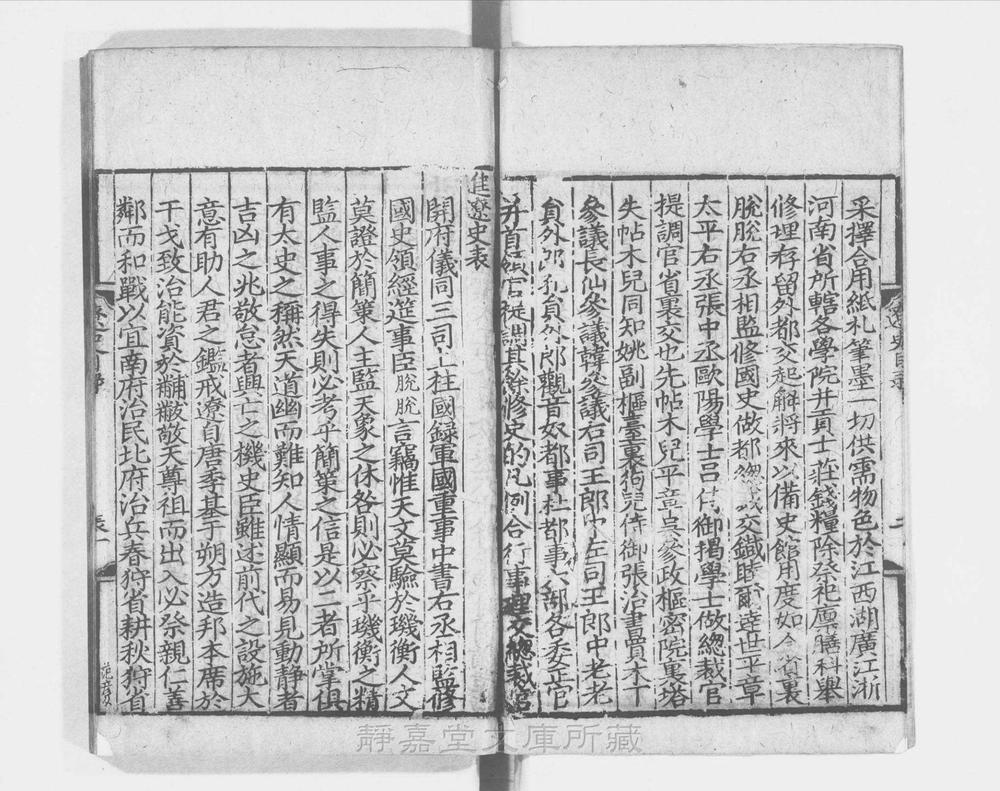 采擇合用紙札筆墨一切供需物色於江西湖廣江浙
河南省所轄各學院并貢士莊錢糧除祭祀廪膳科舉
修理存留外都交起觧將來以備史館用度如今省裏
脫脫右丞相監修國史做都總裁交鐵睦爾達世平章
太平右丞張中丞歐陽學士吕侍御揭學士做總裁官
提調官省裏交也先帖木兒平章吳叅政樞密院裏塔
失帖木兒同知姚副樞臺裏狗兒侍御張治書買木丁
叅議長仙叅議韓叅議右司王郎中左司王郎中老老
貟外郎孔貟外郎觀音奴都事杜都事六部各委正官
并首領官提調其餘修史的凡例合行事理交總裁官
進遼史表
開府儀同三司上柱國録軍國重事中書右丞相監修
國史領經筵事臣脫脫言竊惟天文莫驗於璣衡人文
莫證於簡策人主監天象之休咎則必察乎璣衡之精
監人事之得失則必考乎簡策之信是以二者所掌俱
有太史之稱然天道幽而難知人情顯而易見動静者
吉凶之兆敬怠者興亡之機史臣雖述前代之設施大
意有助人君之鑑戒遼自唐季基于朔方造邦本席於
干戈致治能資於黼黻敬天尊祖而出入必祭親仁善
鄰而和戰以宜南府治民北府治兵春狩省耕秋狩省
表一
靜嘉堂文庫所藏